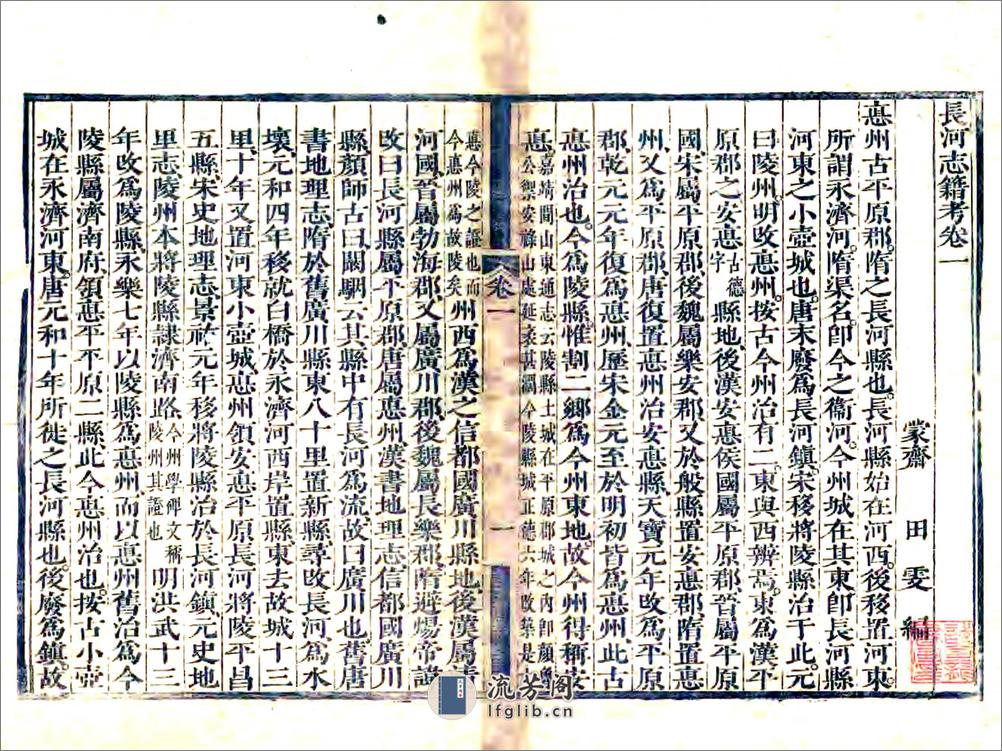 長河志籍考卷一
蒙齋 田雯 編
悳州古平原郡隋之長河縣也長河縣始在河西後移置河東
所謂永濟河隋渠名卽今之衞河今州城在其東卽長河縣
河東之小壺城也唐末廢爲長河鎭宋移將陵縣治于此元
曰陵州明改悳州按古今州治有二東與西辨焉東爲漢平
原郡之安悳古德字縣地後漢安悳侯國屬平原郡晉屬平原
國宋屬平原郡後魏屬樂安郡又於般縣置安悳郡隋置悳
州又爲平原郡唐復置悳州治安悳縣天寶元年改爲平原
郡乾元元年復爲悳州歷宋金元至於明初皆爲悳州此古
悳州治也今爲陵縣惟割二鄉爲今州東地故今州得稱安
悳嘉靖間山東通志云陵縣土城在平原郡城之內卽顏魯
公禦安祿山處延袤甚濶今陵縣城正德六年改築是
悳今陵之證也而
今悳州爲故陵矣州西爲漢之信都國廣川縣地後漢屬淸
河國晉屬勃海郡又屬廣川郡後魏屬長樂郡隋避煬帝諱
改曰長河縣屬平原郡唐屬悳州漢書地理志信都國廣川
縣顏師古曰闞駰云其縣中有長河爲流故曰廣川也舊唐
書地理志隋於舊廣川縣東八十里置新縣尋改長河爲水
壞元和四年移就白橋於永濟河西岸置縣東去故城十三
里十年又置河東小壺城悳州領安悳平原長河將陵平昌
五縣宋史地理志景祐元年移將陵縣治於長河鎭元史地
里志陵州本將陵縣隸濟南路今州學碑文稱陵州其證也明洪武十三
年改爲陵縣永樂七年以陵縣爲悳州而以悳州舊治爲今
陵縣屬濟南府領悳平平原二縣此今悳州治也按古小壺
城在永濟河東唐元和十年所徙之長河縣也後廢爲鎭故
卷一
一
流芳阁
lfglib.cn